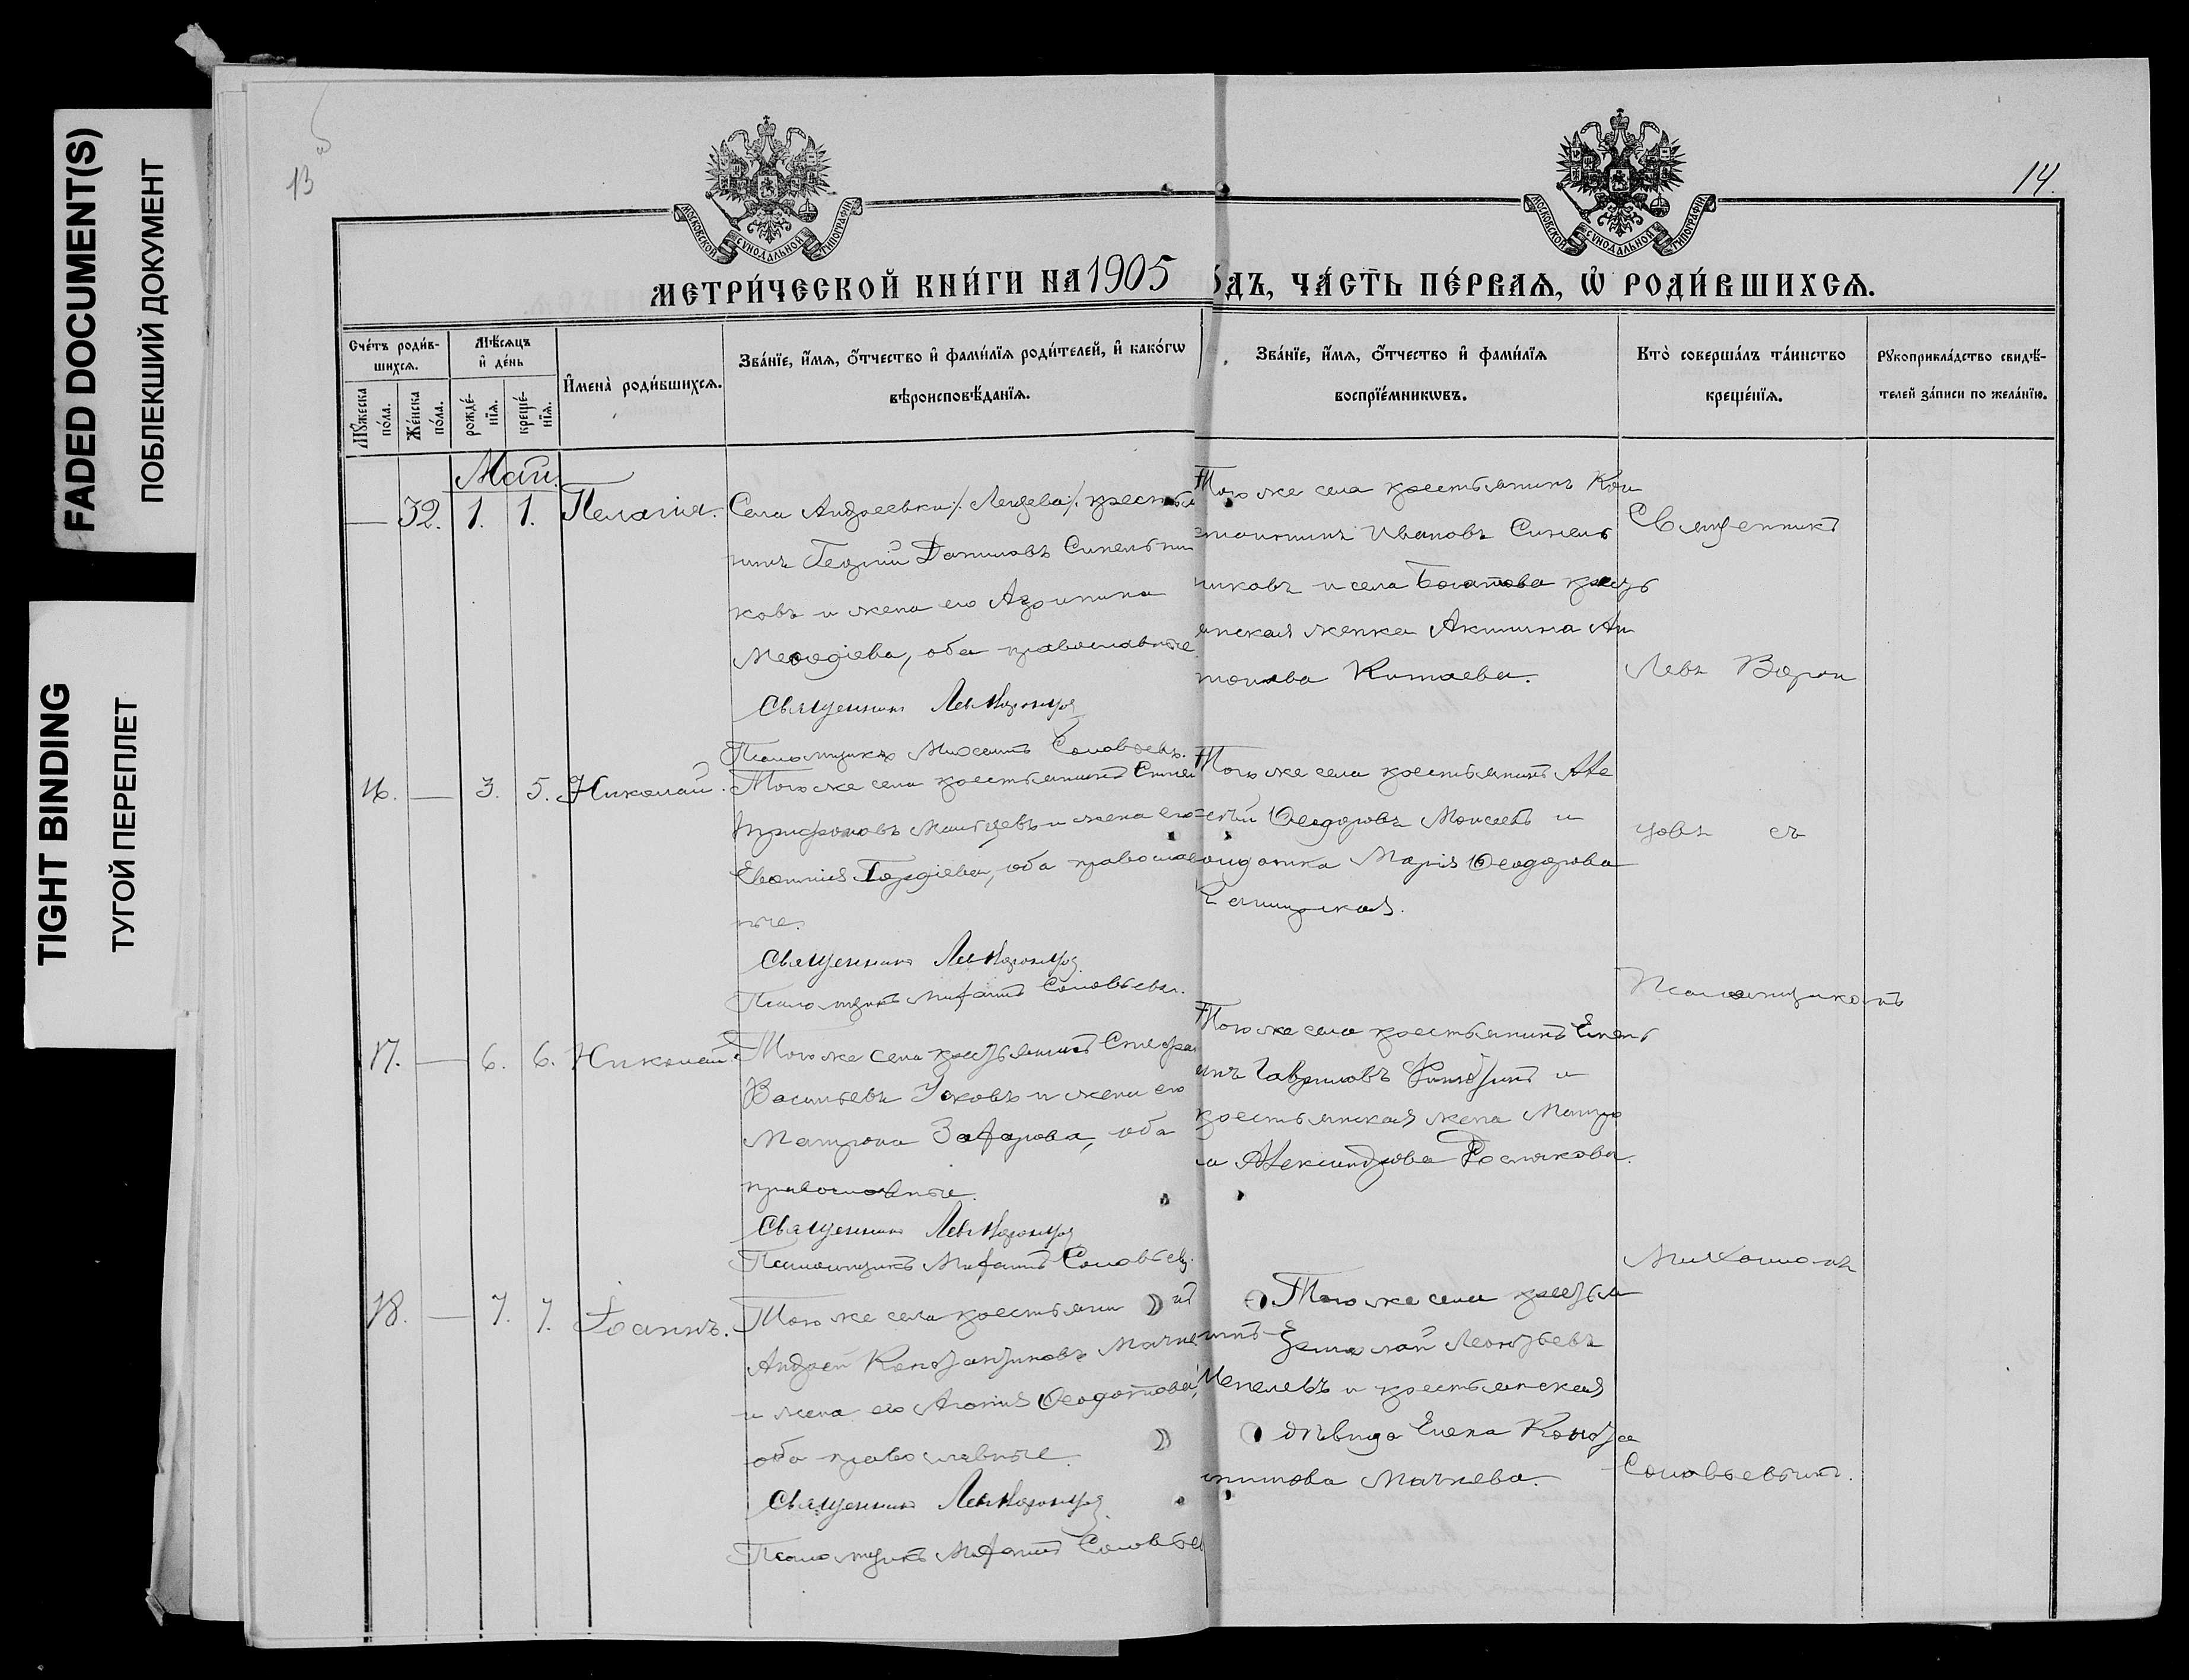 FADED DOCUMENT(S)
ПОБЛЕКШИЙ ДОКУМЕНТ
TIGHT BINDING
ТУГОЙ ПЕРЕПЛЕТ
13
14.
МОСКОВСКОЙ СѴНОДАЛЬНОЙ ТИПОГРАФІИ
МОСКОВСКОЙ СѴНОДАЛЬНОЙ ТИПОГРАФІИ
МЕТРИ́ЧЕСКОЙ КНИ́ГИ НА 1905
ДЪ, ЧА́СТЬ ПЕ́РВАѦ, Ѡ҆ РОДИ́ВШИХСѦ.
Сче́тъ роди́вшихсѧ.
Мꙋ́жеска по́ла.
Же́нска по́ла.
Мѣ́сѧцъ и҆ де́нь
рожде́нїѧ.
креще́нїѧ.
И҆мена̀ роди́вшихсѧ.
Зва́нїе, и҆́мѧ, ѻ҆́тчество и҆ фами́лїѧ роди́телей, и҆ како́гѡ
вѣроисповѣ́данїѧ.
Зва́нїе, и҆́мѧ, ѻ҆́тчество и҆ фами́лїѧ
воспрїе́мникѡвъ.
Кто̀ соверша́лъ та́инство
креще́нїѧ.
Рꙋкоприкла́дство свидѣ́-
телей за́писи по жела́нїю.
Май.
— 32. 1. 1. Пелагія.
Села Андреевки /. Лещева /. крестья
нинъ Георгій Даниловъ Синельни
ковъ и жена его Агрипина
Меѳодіева, оба православные.
Священникъ Левъ Воронцов
Псаломщикъ Михаилъ Соловьевъ.
Того же села крестьянинъ Кон
стантинъ Ивановъ Синель
никовъ и села Богатова крест
янская женка Акилина Ан
тонова Китаева.
16. — 3. 5. Николай.
Того же села крестьянинъ
Трифоновъ Мальцевъ и жена его
Евѳимія Гордіева, оба православ
ные.
Священникъ Левъ Воронцов
Псаломщикъ Михаилъ Соловьевъ.
Того же села крестьянинъ Але
ксѣй Ѳеодоровъ Моисеевъ и
солдатка Марія Ѳеодорова
17. — 6. 6. Николай.
Того же села крестьянинъ Стефан
Васильевъ Усковъ и жена его
Матрона Захарова, оба
православные.
Священникъ Левъ Воронцов
Псаломщикъ Михаилъ Соловьевъ.
Того же села крестьянинъ Емель
янъ Гавриловъ и
крестьянская жена Матро
на Александрова Рослякова.
18. — 7. 7. Іоаннъ.
Того же села крестьянинъ
Андрей Константиновъ Мачне
и жена его Агафія Ѳеодотова,
оба православные.
Священникъ Левъ Воронцов
Псаломщикъ Михаилъ Соловьев
Того же села крестья
нинъ Ермолай Леонтьевъ
Мепелевъ и крестьянская
дѣвица Елена Конста
нтинова Мачнева.
Священникъ
Левъ Ворон
цовъ съ
Псаломщикомъ
Михаиломъ
Соловьевымъ.